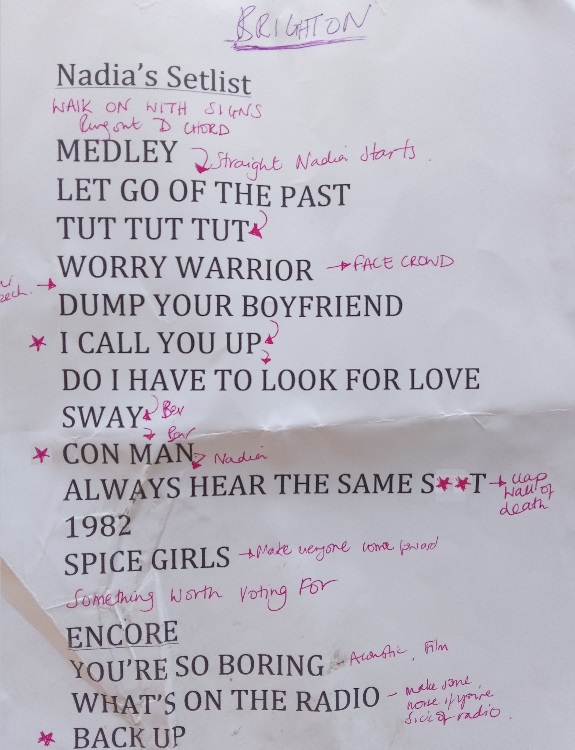 BRIGHTON
Nadia's Setlist
WALK ON WITH SIGNS
Ring out D CHORD
MEDLEY Straight Nadia Starts.
LET GO OF THE PAST
TUT TUT TUT
WORRY WARRIOR → FACE CROWD
DUMP YOUR BOYFRIEND
★ I CALL YOU UP
DO I HAVE TO LOOK FOR LOVE
SWAY Bex
Bex
★ CON MAN Nadia
ALWAYS HEAR THE SAME S★★T → clap
wall of
death
1982
SPICE GIRLS → Make everyone come forward
Something Worth Voting For
ENCORE
YOU'RE SO BORING - Acoustic, Film
WHAT'S ON THE RADIO - make some
noise if you're
sick of radio.
★ BACK UP